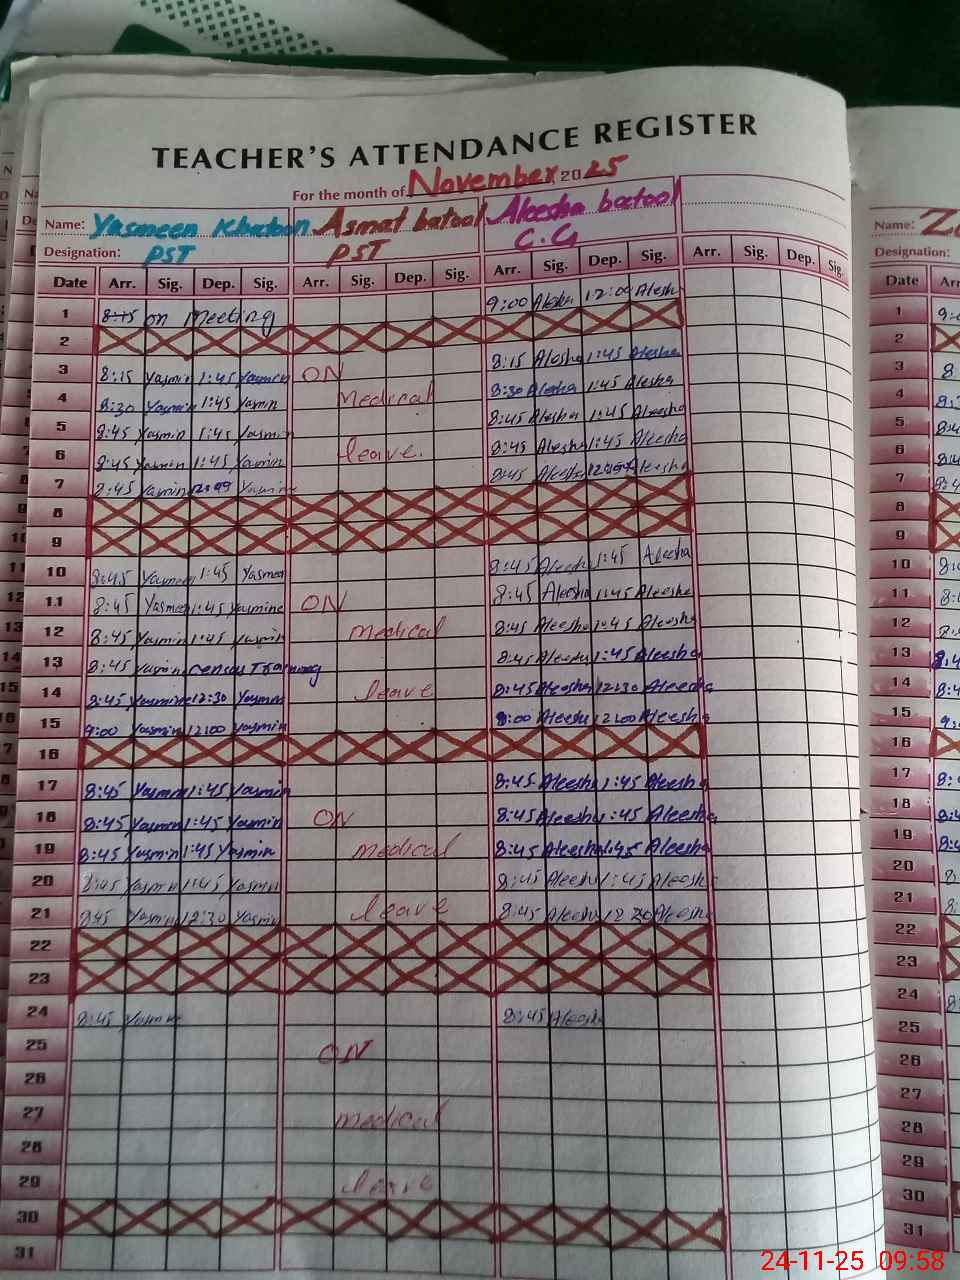 TEACHER'S ATTENDANCE REGISTER
For the month of November 2025
Name: Yasmeen Khatoon Asmat batool Aleesha batool
Designation: PST PST C.G
Date Arr. Sig. Dep. Sig. Arr. Sig. Dep. Sig. Arr. Sig. Dep. Sig. Arr. Sig. Dep. Sig.
1 8:15 on Meeting 9:00 Alesha 12:00 Alesh
2
3 8:15 Yasmin 1:45 Yasmin ON 8:15 Alesha 1:45 Alesha
4 8:30 Yasmin 1:45 Yasmin Medical 8:30 Alesha 1:45 Alesha
5 8:45 Yasmin 1:45 Yasmin 8:45 Alesha 1:45 Aleesha
6 8:45 Yasmin 1:45 Yasmin leave. 8:45 Alesha 1:45 Aleesha
7 8:45 Yasmin Yasmine 8:45 Alesha Aleesha
8
9
10 8:45 Yasmeen 1:45 Yasmeen 8:45 Aleesha 1:45 Aleesha
11 8:45 Yasmeen 1:45 Yasmine ON 8:45 Aleesha 1:45 Aleesha
12 8:45 Yasmin 1:45 Yasmin medical 8:45 Aleesha 1:45 Aleesha
13 8:45 Yasmin Census Training 8:45 Aleesha 1:45 Aleesha
14 8:45 Yasmine 12:30 Yasmin leave 8:45 Aleesha 12:30 Aleesha
15 9:00 Yasmin 12:00 Yasmin 9:00 Aleesha 12:00 Aleesha
16
17 8:45 Yasmin 1:45 Yasmin 8:45 Aleesha 1:45 Aleesha
18 8:45 Yasmin 1:45 Yasmin ON 8:45 Aleesha 1:45 Aleesha
19 8:45 Yasmin 1:45 Yasmin medical 8:45 Aleesha 1:45 Aleesha
20 8:45 Yasmin 1:45 Yasmin 8:45 Aleesha 1:45 Aleesha
21 8:45 Yasmin 12:30 Yasmin leave 8:45 Aleesha 12:30 Aleesha
22
23
24 8:45 Yasmin 8:45 Aleesha
25 ON
26
27 medical
28
29 leave
30
31
Name:
Designation:
Date
1
2
3
4
5
6
7
8
9
10
11
12
13
14
15
16
17
18
19
20
21
22
23
24
25
26
27
28
29
30
31
24-11-25 09:58